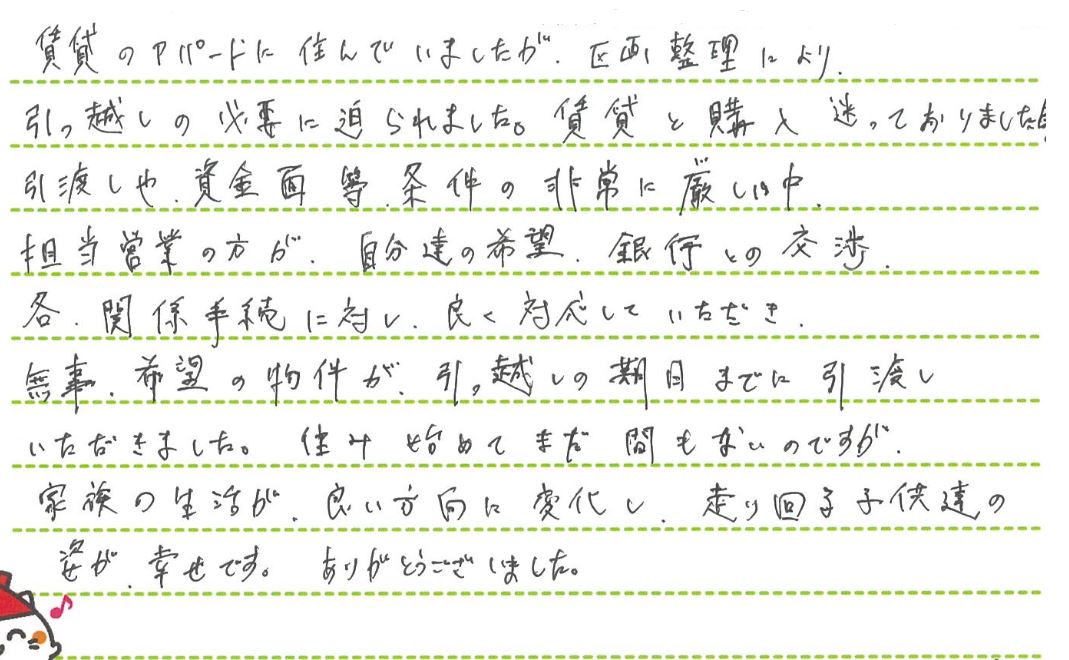 賃貸のアパートに住んでいましたが、区画整理により、
引っ越しの必要に迫られました。賃貸と購入迷っておりました
引渡しや、資金面等、条件の非常に厳しい中、
担当営業の方が、自分達の希望、銀行との交渉、
各、関係手続に対し、良く対応していただき、
無事、希望の物件が、引っ越しの期日までに引渡し
いただきました。住み始めてまだ間もないのですが、
家族の生活が、良い方向に変化し、走り回る子供達の
姿が、幸せです。ありがとうございました。